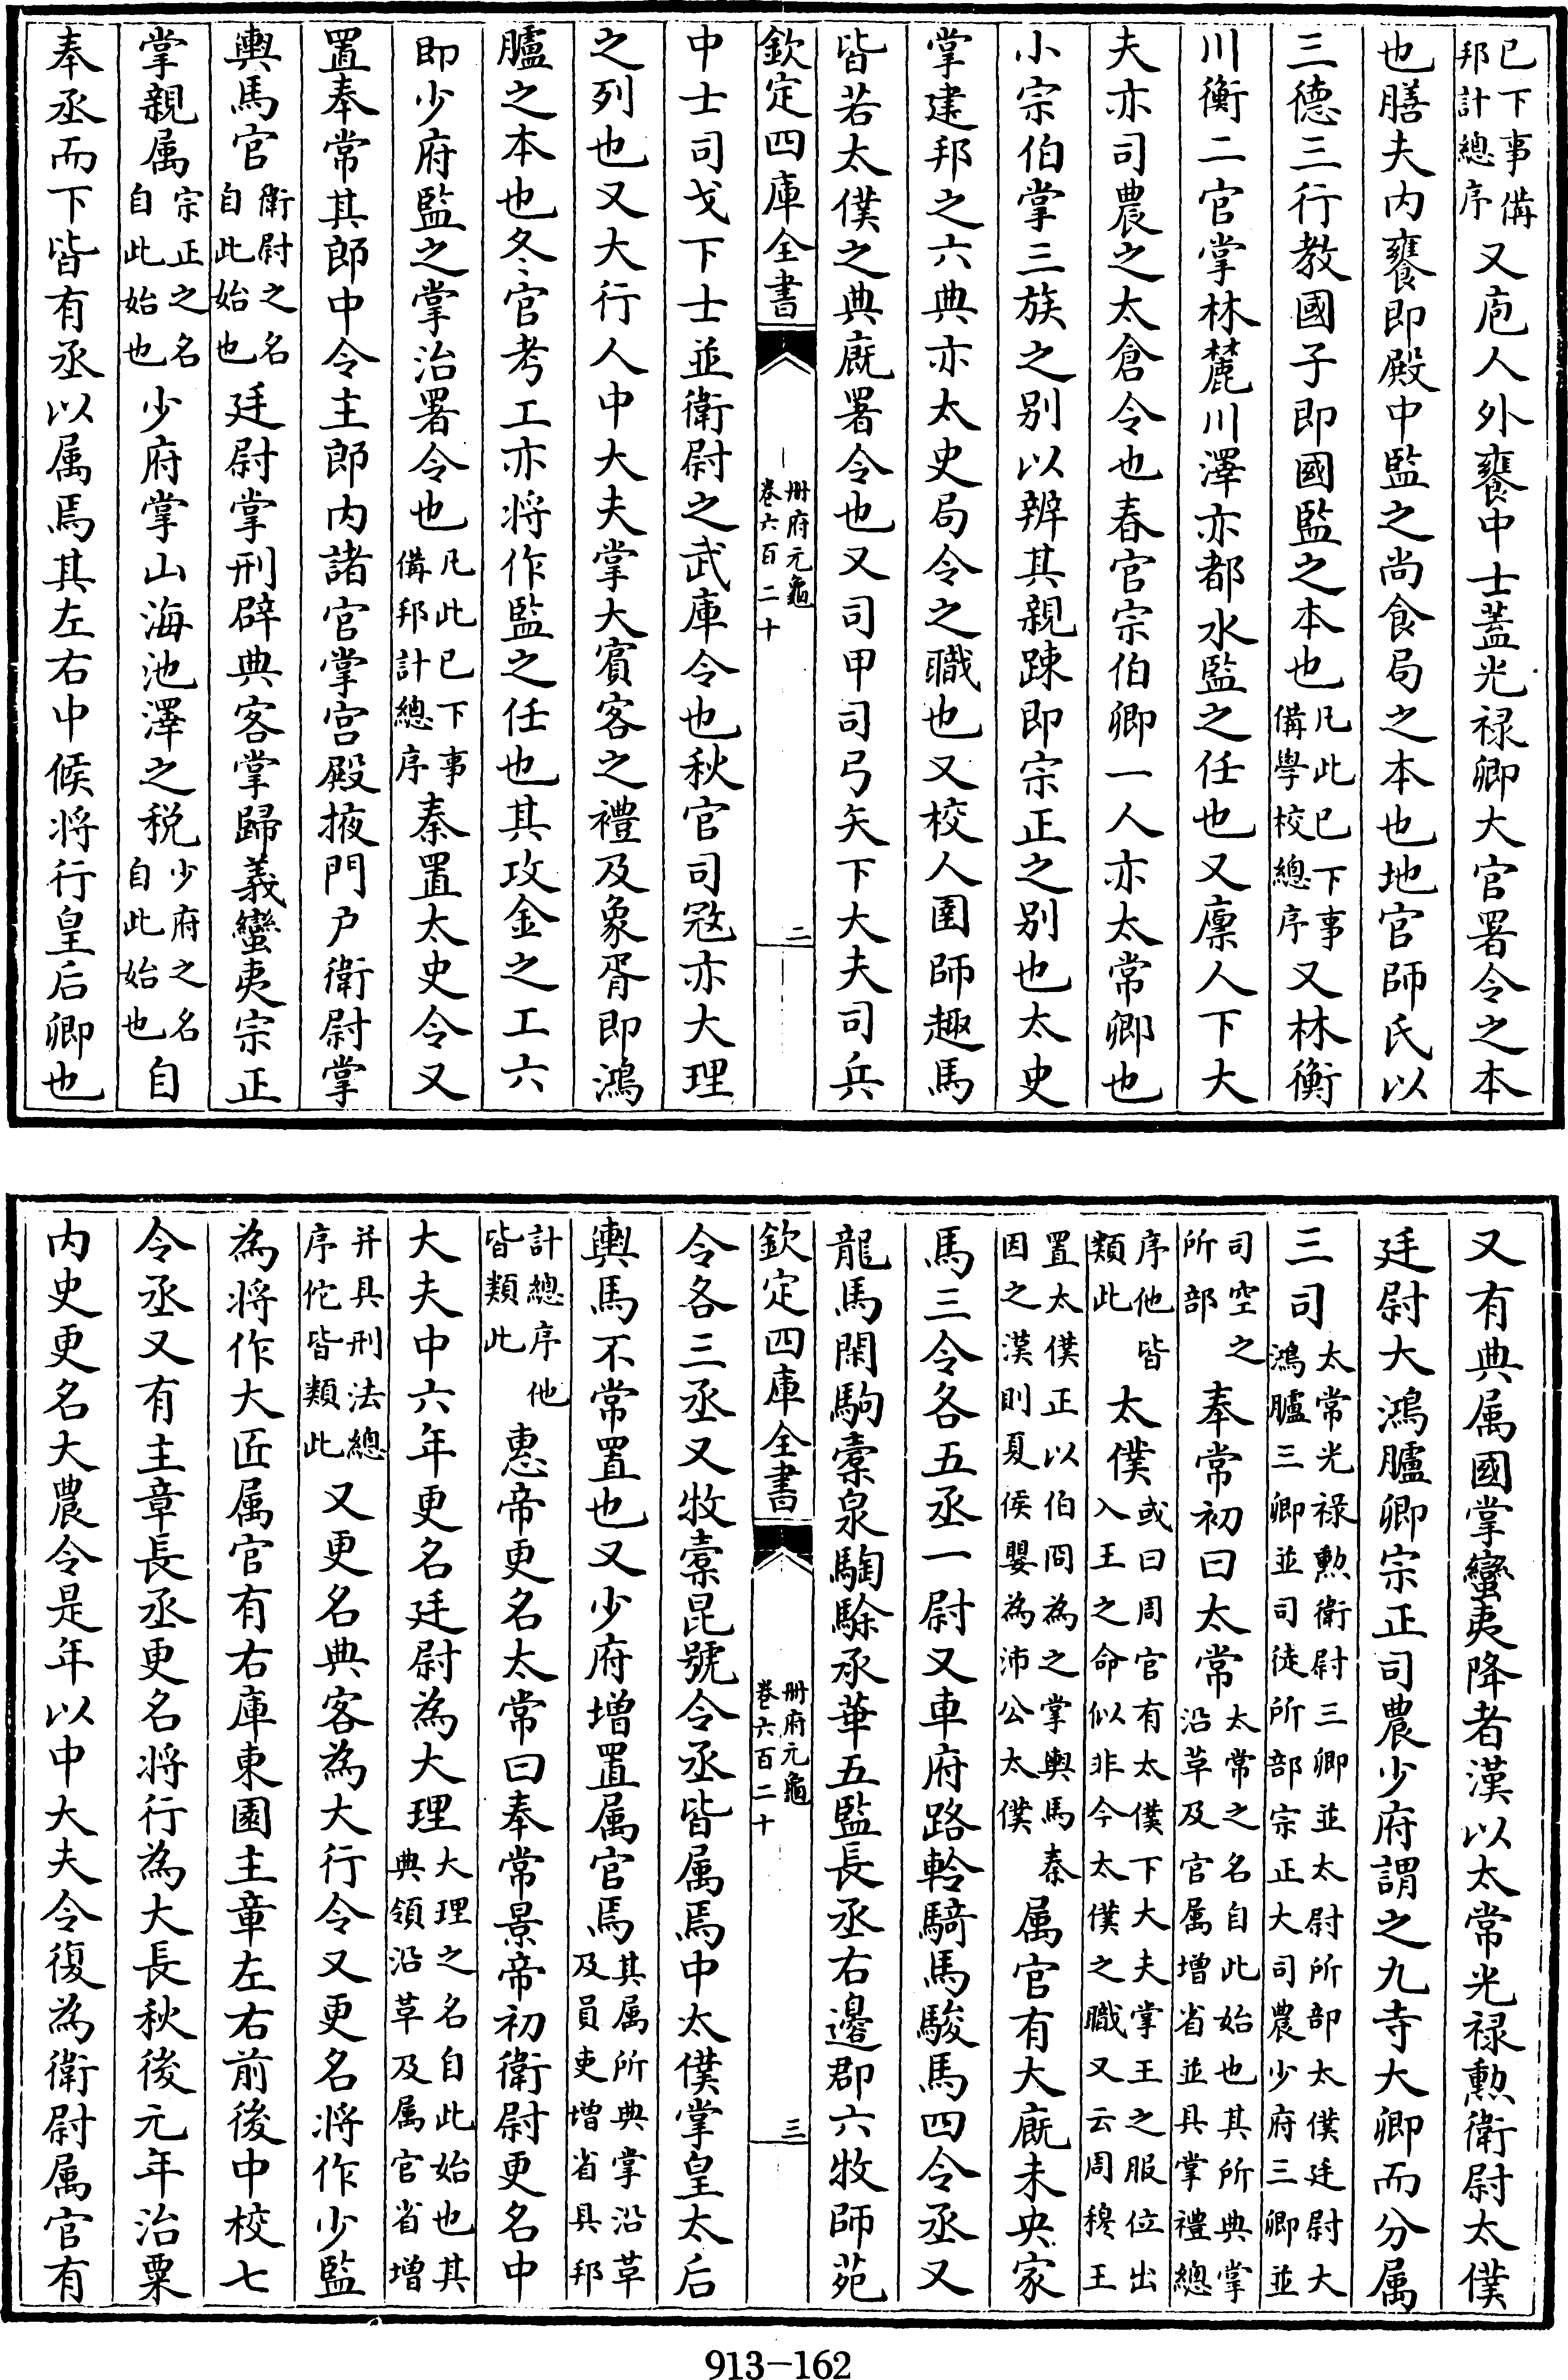 已下事備邦計總序又庖人外饔中士蓋光禄卿大官署令之本
也膳夫内饔即殿中監之尚食局之本也地官師氏以
三德三行教國子即國監之本也凡此已下事備學校總序又林衡
川衡二官掌林麓川澤亦都水監之任也又廪人下大
夫亦司農之太倉令也春官宗伯卿一人亦太常卿也
小宗伯掌三族之别以辨其親踈即宗正之别也太史
掌建邦之六典亦太史局令之職也又校人圉師趣馬
皆若太僕之典廐署令也又司甲司弓矢下大夫司兵
欽定四庫全書 冊府元龜卷六百二十 二
中士司戈下士並衛尉之武庫令也秋官司宼亦大理
之列也又大行人中大夫掌大賓客之禮及象胥即鴻
臚之本也冬官考工亦将作監之任也其攻金之工六
即少府監之掌治署令也凡此已下事備邦計總序秦置太史令又
置奉常其郎中令主郎内諸官掌宫殿掖門户衛尉掌
輿馬官衛尉之名自此始也廷尉掌刑辟典客掌歸義蠻夷宗正
掌親属宗正之名自此始也少府掌山海池澤之税少府之名自此始也自
奉丞而下皆有丞以属焉其左右中候将行皇后卿也
又有典属國掌蠻夷降者漢以太常光禄勲衛尉太僕
廷尉大鴻臚卿宗正司農少府謂之九寺大卿而分属
三司太常光禄勲衛尉三卿並太尉所部太僕廷尉大鴻臚三卿並司徒所部宗正大司農少府三卿並
司空之所部奉常初曰太常太常之名自此始也其所典掌沿革及官属增省並具掌禮總
序他皆類此太僕或曰周官有太僕下大夫掌王之服位出入王之命似非今太僕之職又云周穆王
置太僕正以伯冏為之掌輿馬秦因之漢則夏侯嬰為沛公太僕属官有大廐未央家
馬三令各五丞一尉又車府路軨騎馬駿馬四令丞又
龍馬閑駒槖泉騊駼承華五監長丞右邊郡六牧師苑
欽定四庫全書 冊府元龜卷六百二十 三
令各三丞又牧槖昆蹏令丞皆属焉中太僕掌皇太后
輿馬不常置也又少府增置属官焉其属所典掌沿革及員吏增省具邦
計總序他皆類此惠帝更名太常曰奉常景帝初衛尉更名中
大夫中六年更名廷尉為大理大理之名自此始也其典領沿革及属官省增
并具刑法總序佗皆類此又更名典客為大行令又更名将作少監
為将作大匠属官有右庫東園主章左右前後中校七
令丞又有主章長丞更名将行為大長秋後元年治粟
内史更名大農令是年以中大夫令復為衛尉属官有
913-162